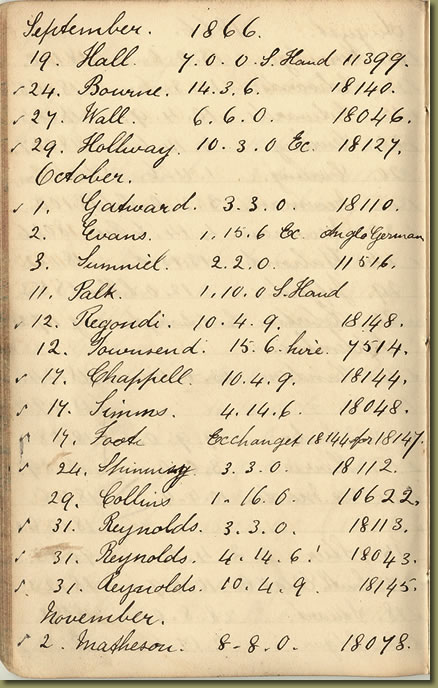 September. 1866.
19. Hall. 7.0.0 S. Hand 11399.
✓ 24. Bourne. 14.3.6. 18140.
✓ 27. Wall. 6.6.0. 18046.
✓ 29. Hollway. 10.3.0 Ec. 18127.
October.
✓ 1. Gatward. 3.3.0. 18110.
2. Evans. 1.15.6 Ec Anglo German
3. 2.2.0. 11516.
11. Palk. 1.10.0 S. Hand
✓ 12. Regondi. 10.4.9. 18148.
12. Townsend. 15.6. hire. 7514.
✓ 17. Chappell. 10.4.9. 18144.
✓ 17. Simms. 4.14.6. 18048.
✓ 17. Foot Ecchanget 18144 for 18147.
✓ 24. 3.3.0. 18112.
29. Collins 1.16.0. 10622.
✓ 31. Reynolds. 3.3.0. 18113.
✓ 31. Reynolds. 4.14.6. 18043.
✓ 31. Reynolds. 10.4.9. 18145.
November.
✓ 2. Matheson. 8-8.0. 18078.